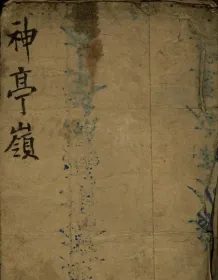 神亭嶺